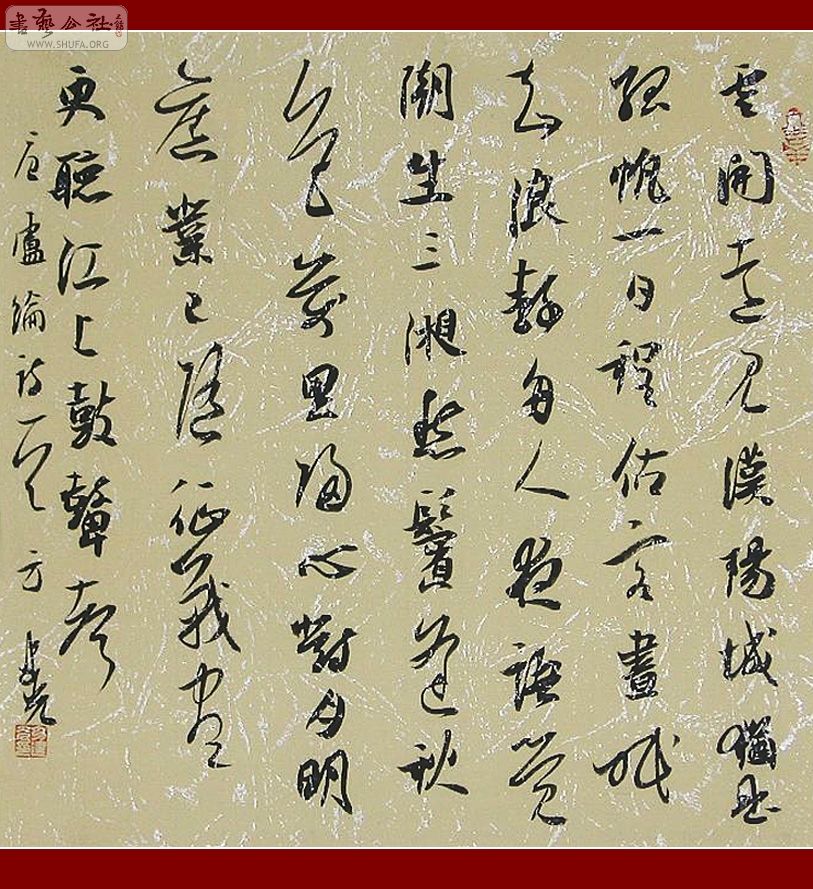 雲開遠見漢陽城猶是
孤帆一日程估客晝眠
知浪靜舟人夜語覺
潮生三湘愁鬢逢秋
色萬里歸心對月明
舊業已隨征戰盡
更聽江上鼓鼙聲
唐盧綸詩一首 方建光
書藝公社
WWW.SHUFA.ORG